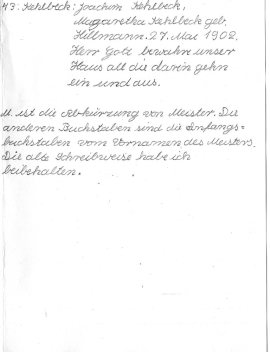 43. Kehlbeck: Joachim Kehlbeck,
Magaretha Kehlbeck geb.
Hillmann. 27. Mai 1902.
Herr Gott bewahr unser
Haus all die darin gehn
ein und aus.
M. ist die Abkürzung von Meister. Die
anderen Buchstaben sind die Anfangs=
buchstaben vom Vornamen des Meisters.
Die alte Schreibweise habe ich
beibehalten.